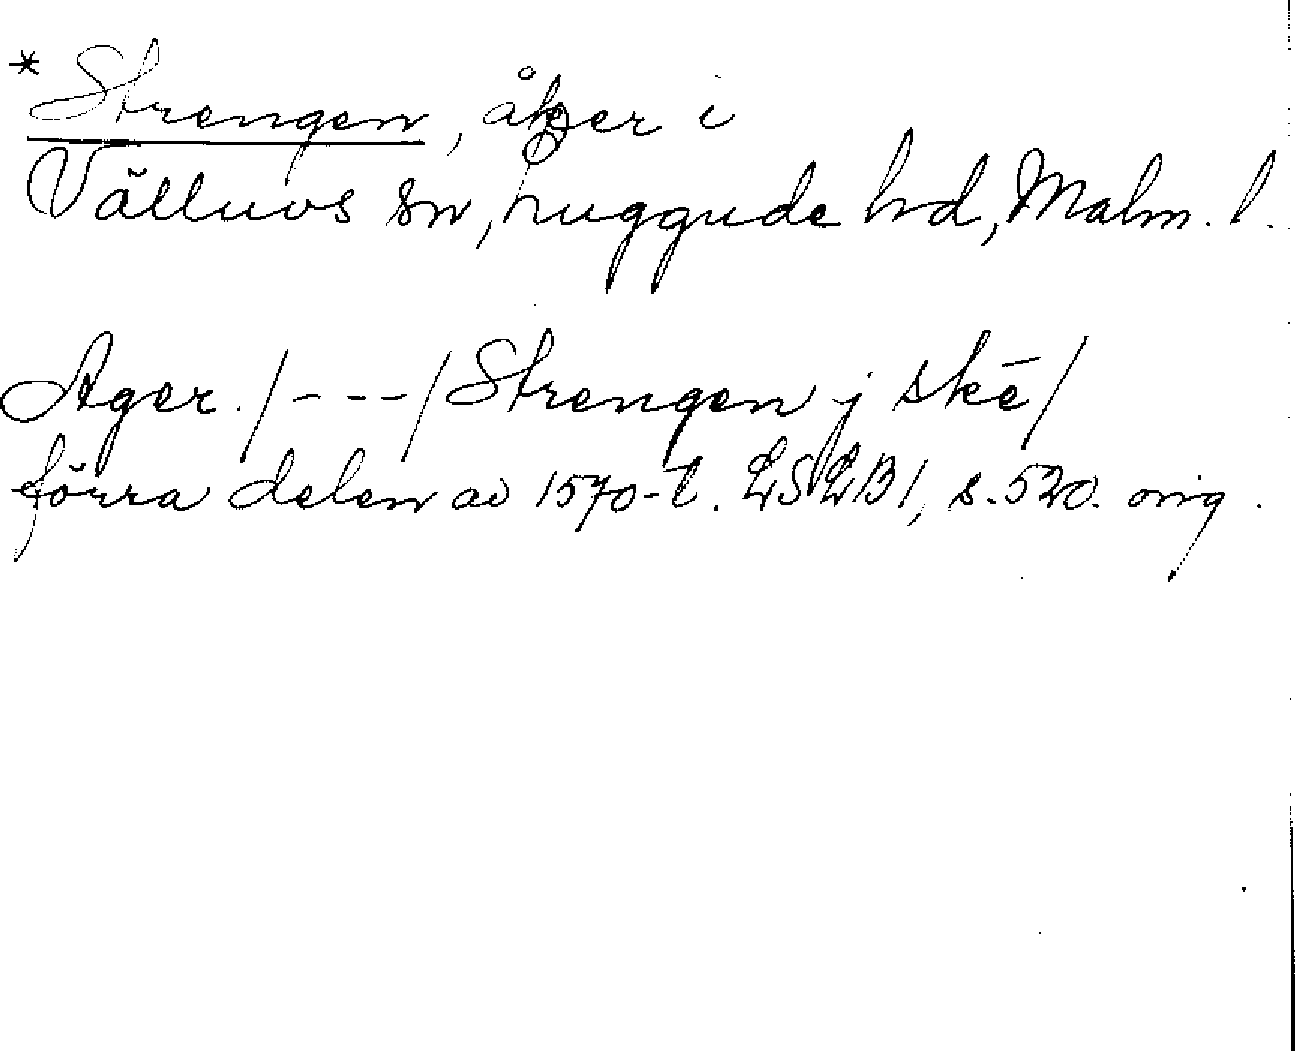 * Strengen, åker i
Välluvs sn, Luggude hd, Malm. l.
Ager /---/ Strengen j skē/
förra delen av 1570-t. LSLB I, s. 520. orig.